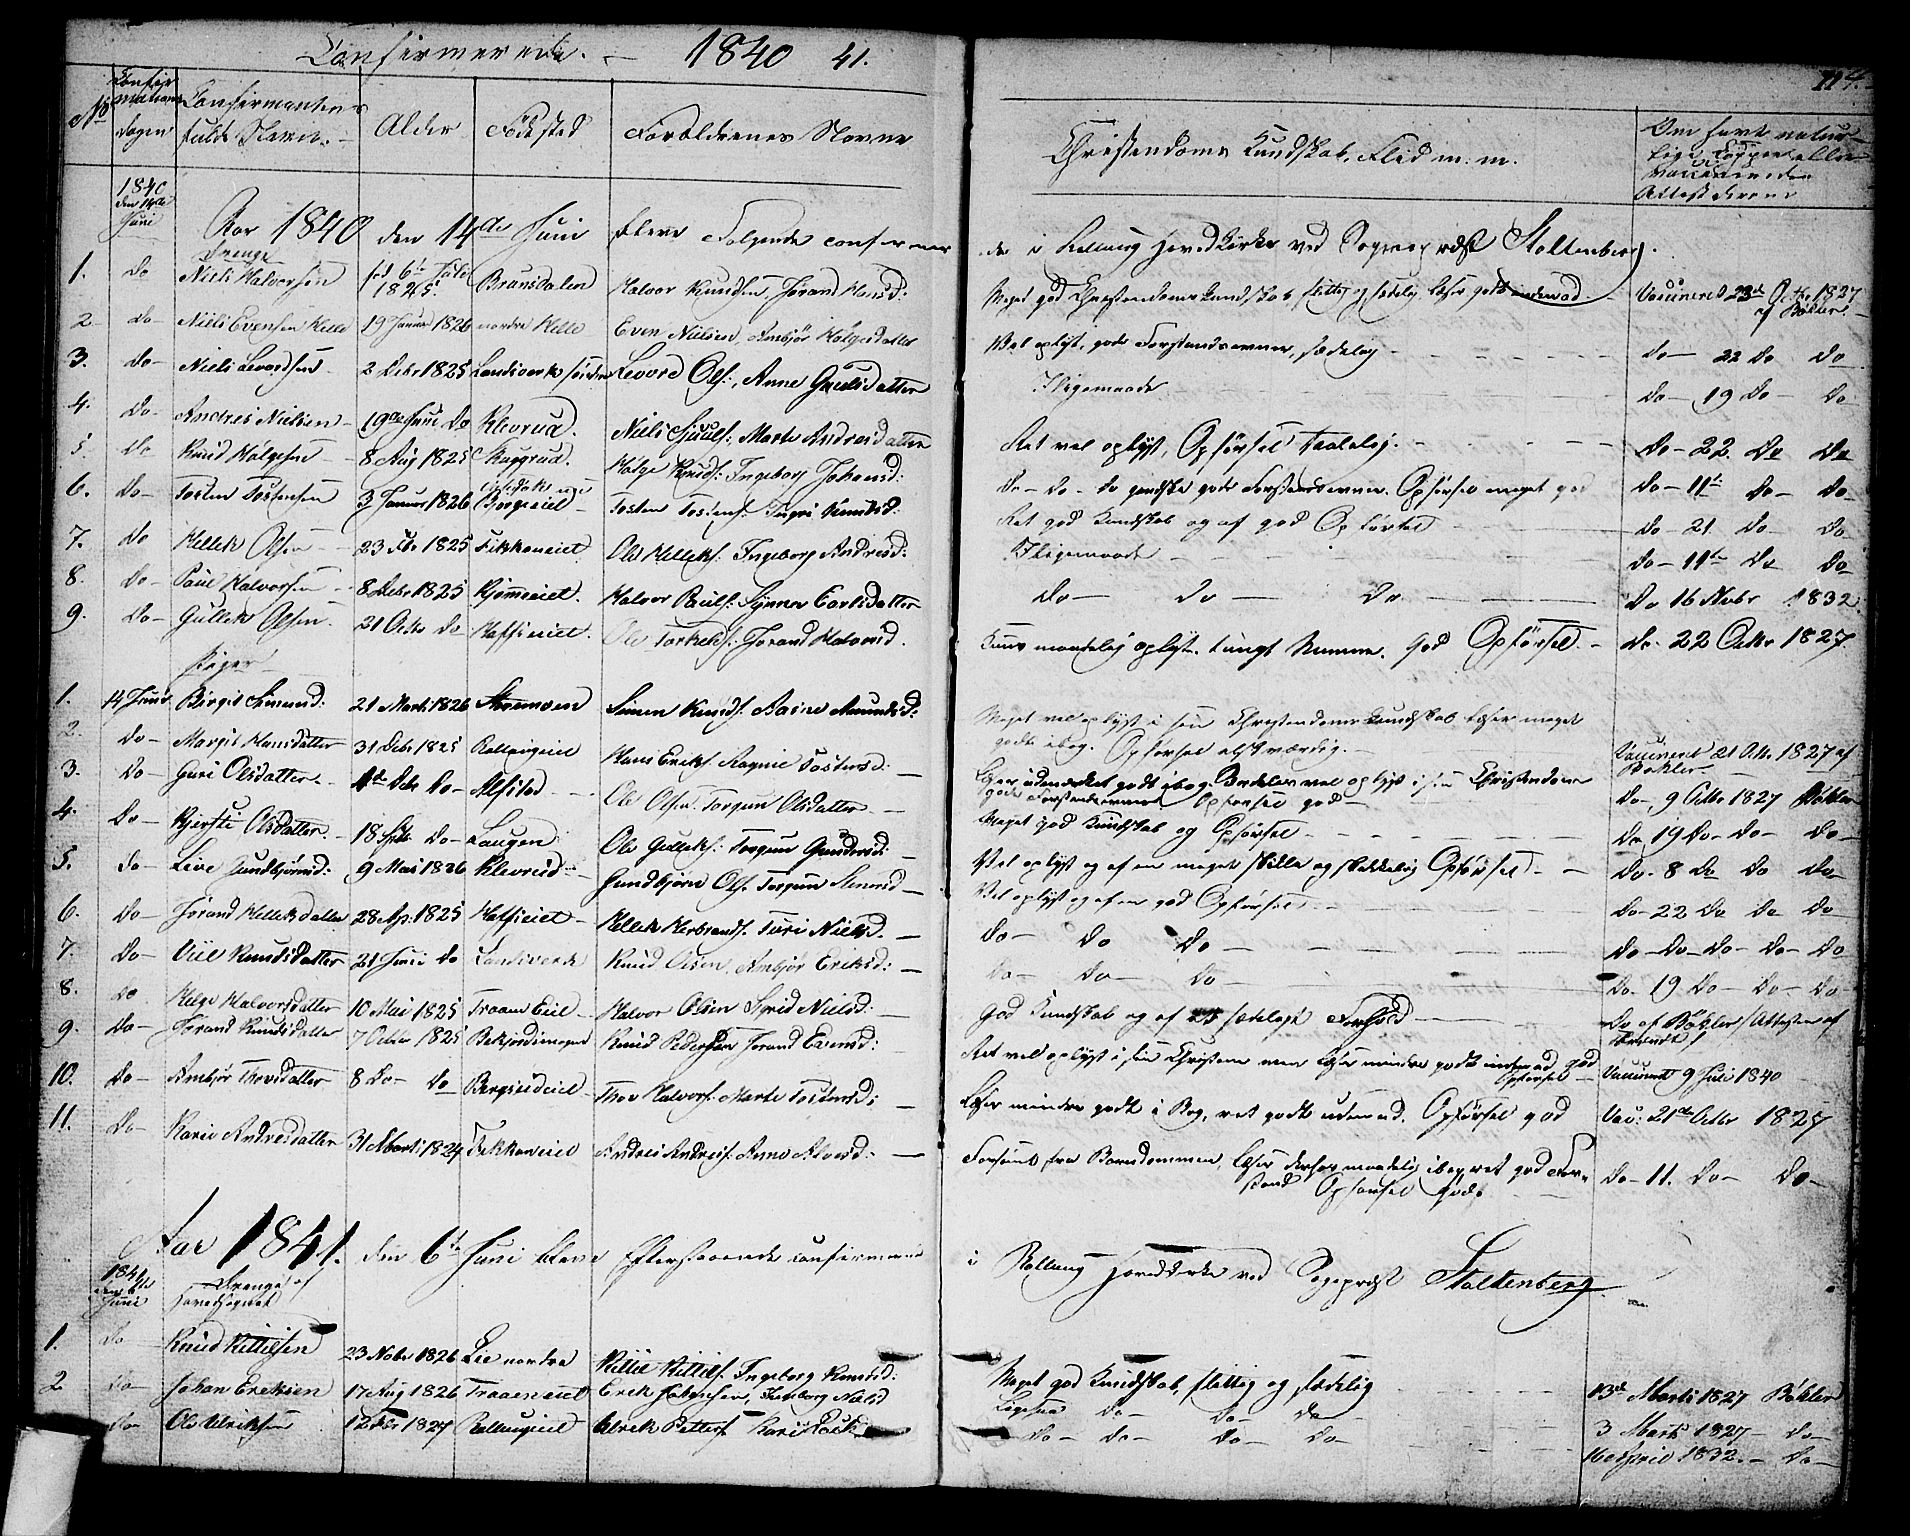 Confirmerede. — 1840 41.
114.
No
Confirmations Dagen
Confirmantens fulde Navn. —
Alder
Födested
Forældrenes Navne
Christendoms Kundskab, Flid m. m.
Om havt naturlige Kopper eller Vaccinerede
1840 den 14de Juni
Aar 1840 den 14de Juni bleve Følgende confirmerede i Rollaug Hovedkirke ved Sognepræst Stoltenberg.
Drenge
1. do Niels Halvorsen fød 6te 1825. Brunsdalen Halvor Knudsen, Jørand Hansd: Meget god Christendomskundskab, flittig og sædelig, læser godt indenad Vaccineret 23de Octbr 1827 af Bøkler. —
2 do— Niels Evensen Helle 19 Januar 1826 nordre Helle Even Nielsen, Ambjør Helgesdatter Vel oplyst, gode Forstandsevner, sædelig — Do — 22 Do Do
3. do— Niels Levordsen 2 Debr 1825 Landsverk søndre Levord Ols:, Anne Gulsdatter Ligemaade — Do — 19 Do — Do
4. Do— Andres Nielsen — 19de Juni Do Klevrud. Niels Marte Andresdatter Ret vel oplyst, Opførsel taalelig. — Do — 22. Do Do
5. do Knud Helgesen — 8 Aug 1825 Helge Knuds: Ingeborg Johansd: Do — Do — Do ganske gode Forstandsevner. Opførsel meget god Do — 11te Do — Do
6. Do— Tosten Tostensen 3 Januar 1826 Borgeeiet — Tosten Tostens: Ingri Knudsd: Ret god Kundskab og af god Opførsel Do — 21. Do — Do
7. do Hellek Olsen — 23 1825 Fekkeneiet Ole Helleks: Ingeborg Andresd: Ligemaade — Do — 11te Do Do
8. Do— Paul Halvorsen — 8 Debr 1825 Halvor Pauls: Synnev Carlsdatter Do — Do — Do — Do 16 Novbr 1832.
9. Do— Gullek Olsen 21 Octbr Do Ole Torkels: Jorand Halvorsd. Kuns maadelig oplyst. tungt Nemme. God Opførsel. — Do — 22 Octbr 1827
Piger —
1. 14 Juni Birgit Simensd: 21 Marts 1826 Simen Knuds: Amundsd: Meget vel oplyst i sin Christendomskundskab læser meget
godt i bog. Opførsel elskværdig. — Vaccineret 21 Octbr 1827 af Bøkler —
2. Do— Margit Hansdatter 31 Debr 1825 Rollaugeiet Hans Eriks: Ragnie Tostensd: — Læser udmærket godt i bog. Andeles vel oplyst i sin Christendom
gode Forstandsevner Opførsel god — Do — 9 Octbr 1827 Bøkler
3. Do— Guri Olsdatter — Debr Do— Alfstad — Ole Olsen Torgun Olsdatter — Meget god Kundskab og Opførsel — Do 19 Do — Do — Do —
4. Do— Kjersti Olsdatter — 18 Septb Do— Laugen Ole Gulleks: Torgun Gundersd: — Vel oplyst og af en meget stille og skikkelig Opførsel — Do — 8 Do Do Do —
5. do Live Gundbjørnsd: 9 Mai 1826 Klevrud Gundbjørn Ols: Torgun — Vel oplyst og af en god Opførsel — Do — 22 Do Do Do —
6. Do— Jørand Helleksdatter 28 Ap: 1825 Hellek Herbrands: Turi Nielsd. — Do — Do Do — Do — Do — Do — Do — Do
7. Do— Knudsdatter 21 Juni Do Landsverk Knud Olsen Ambjør Eriksd: — Do — Do — Do — Do — 19 Do — Do — Do —
8. Do Helge Halvorsdatter 10 Mai 1825 Traaen Eiet Halvor Olsen Sigrid Nielsd: — God Kundskab og af et sædeligt Forhold — Do af Bøkler / Attesten af
9. Do— Jorand Knudsdatter 7 Octbr 1825 Knud Pedersen Jorand Evensd: — Ret vel oplyst i sin Christend: men læser mindre godt indenad god
Opførsel — Vaccineret 9 Juli 1840
10. Do— Ambjør Thovsdatter 8 Do— Do Bergseideiet Thov Halvors: Marte Tostensd: — Læser mindre godt i Bog, ret godt udenad. Opførsel god Vac: 21de Octbr 1827
11. Do— Kari Andresdatter 31 Marts 1824 Fekkeneiet Andres Andreas: Anne Alvsd: — Forsømt fra Barndommen, læser derfor maadelig i bog, ret god Forstand Opførsel God. Do — 11. Do — Do —
Aar 1841. den 6te Juni bleve Efterstaaende confirmerede i Rollaug Hovedkirke ved Sognepræst Stoltenberg.
1841 den 6te Juni
Drenge af Hovedsognet
1. Do Knud Kittilsen 23 Novbr 1826 Lie nordre Kittil Kittils: Ingeborg Knudsd: Meget god Kundskab, flittig og sædelig 13de Marts 1827 Bøkler
2 Do— Johan Eriksen 17 Aug 1826 Traaeneiet Erik Johansen, Ingeborg Nielsd Ligesaa Do — Do — Do — 3 Marts 1827 — Do —
Do— Ole Ulriksen 12 1827 Rollaugeiet Ulrik Petters: Kari Do — Do — Do — Do 16 April 1832. — Do —